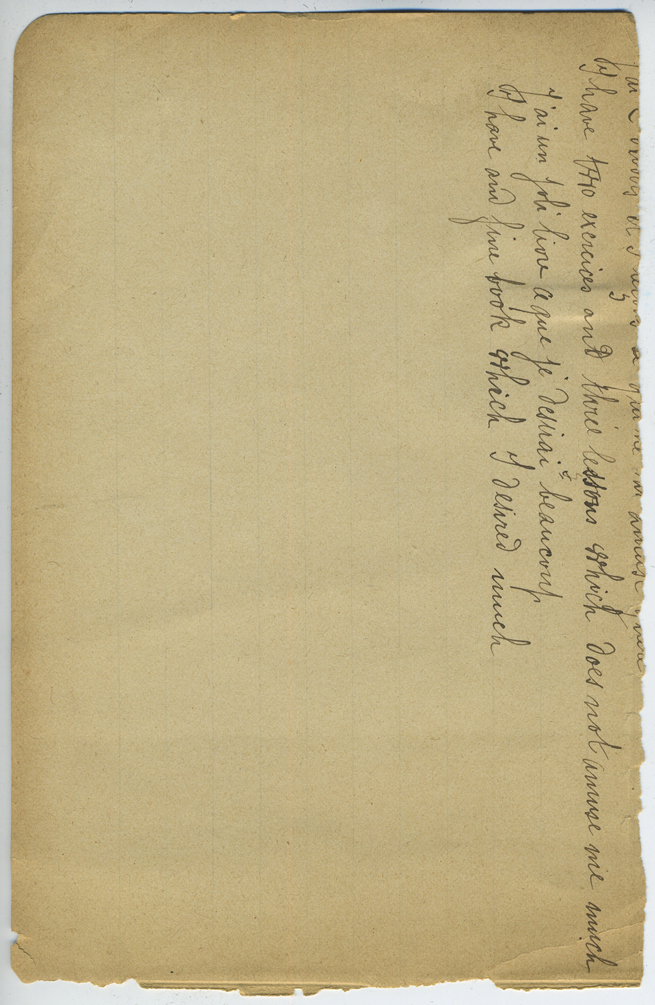 J'ai 2 qui ne m'amuse guère
I have two exercices and three lessons which does not amuse me much
J'ai un joli livre que je desirai beaucoup
I have and fine book which I desired much